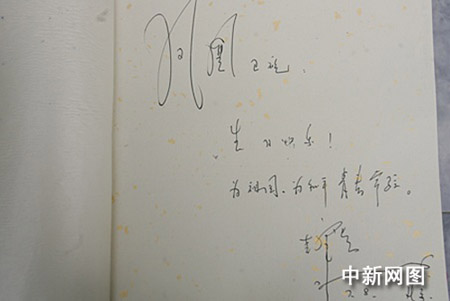 凤凰卫视:
生日快乐!
为祖国、为和平青春常驻。
中新网图